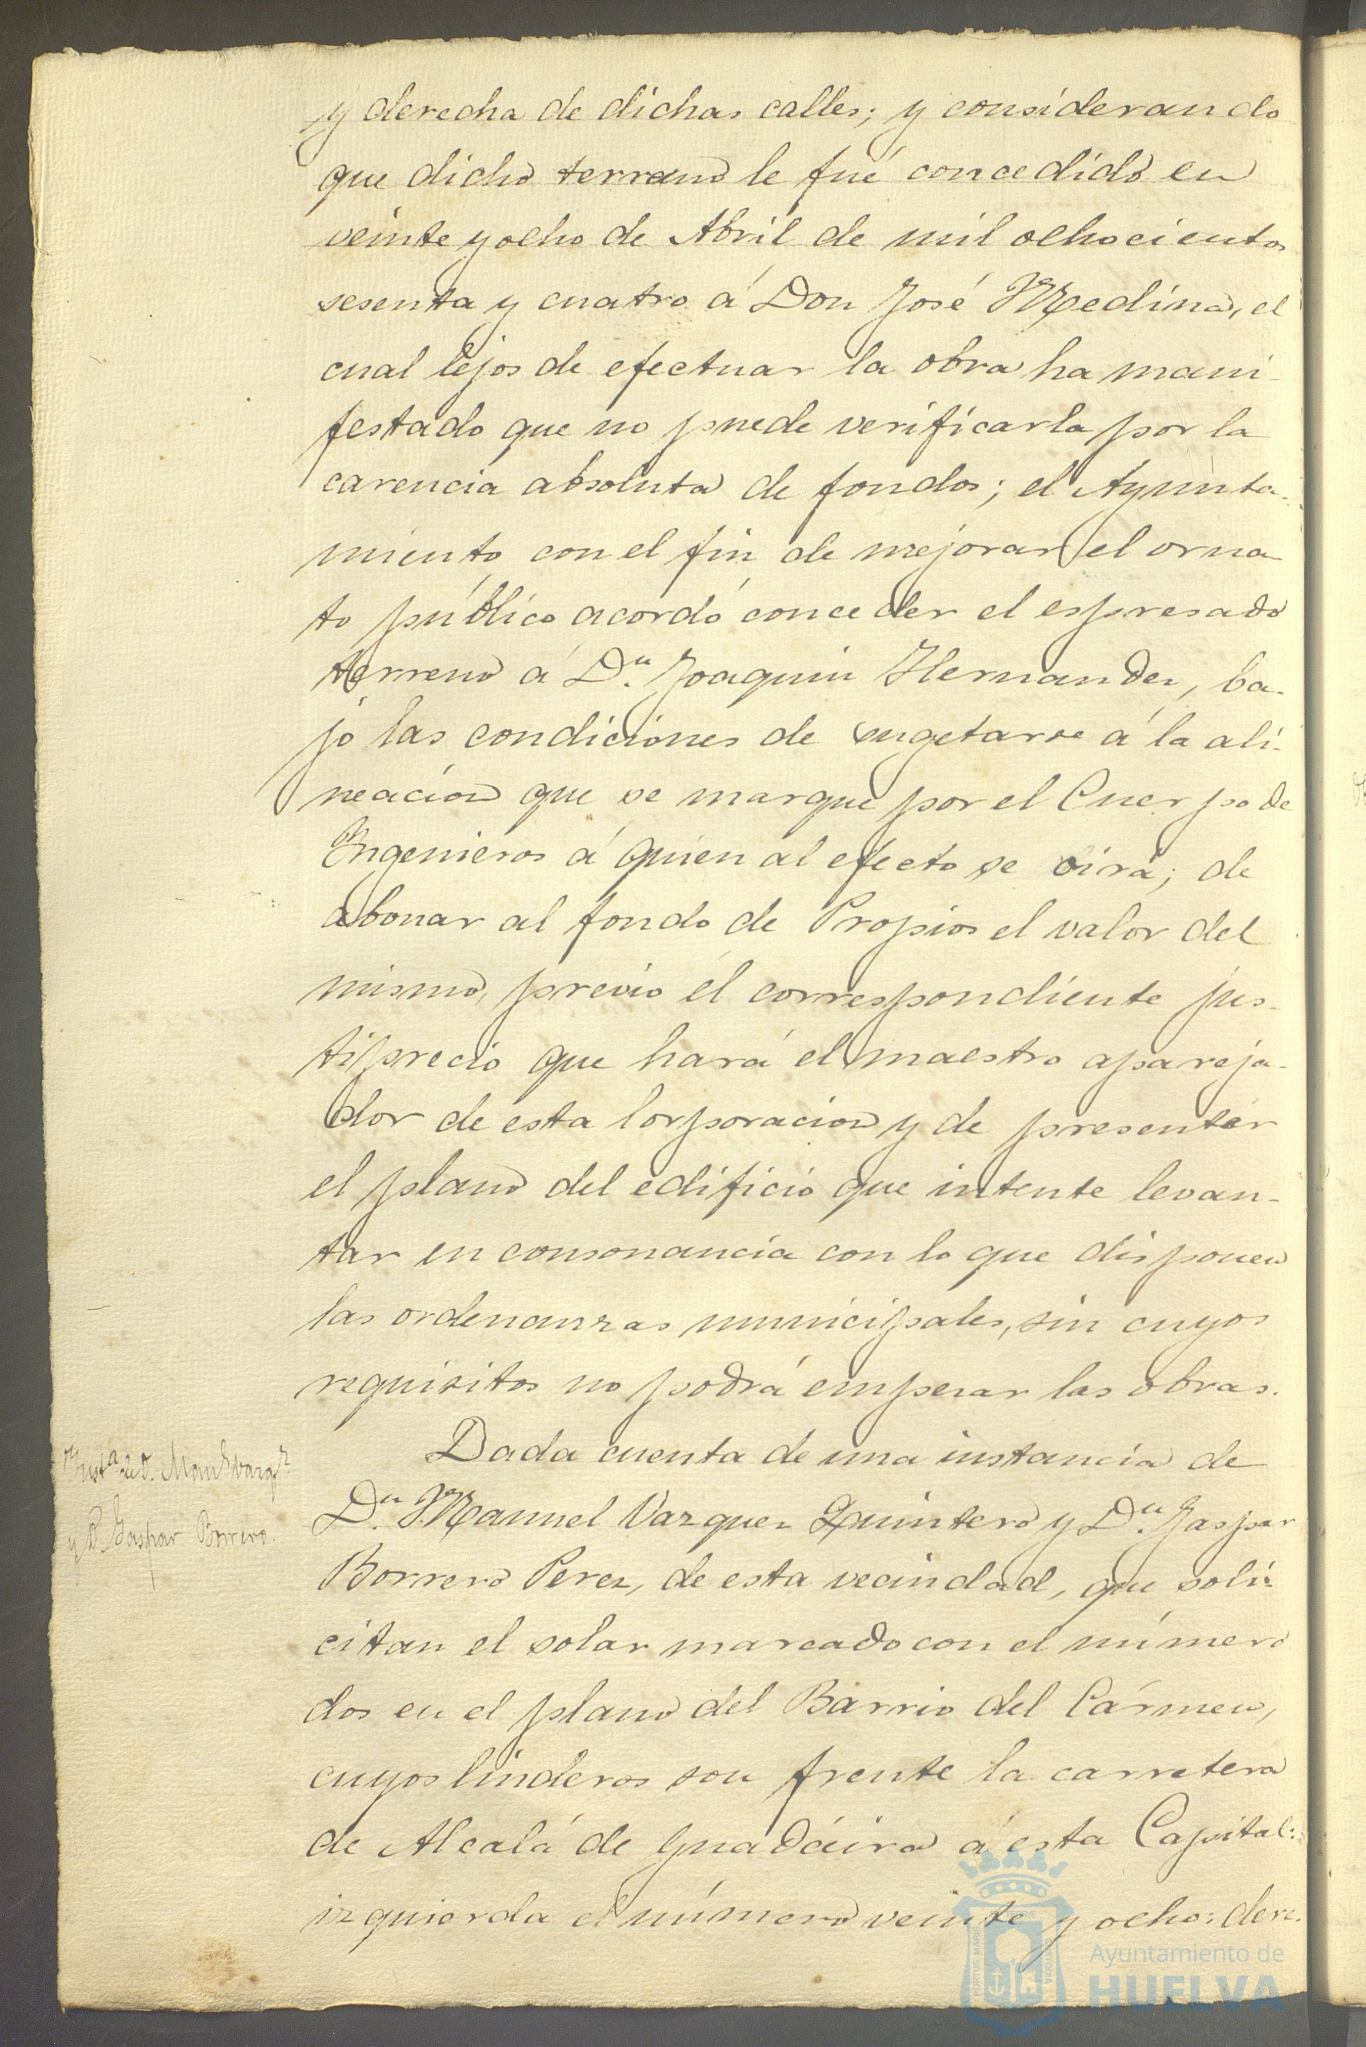 y derecha de dichas calles; y considerando
que dicho terreno le fué concedido en
veinte y ocho de Abril de mil ochocientos
sesenta y cuatro á Don José Medina, el
cual lejos de efectuar la obra ha mani-
festado que no puede verificarla por la
carencia absoluta de fondos; el Ayunta-
miento con el fin de mejorar el orna-
to público acordó conceder el espresado
terreno á Dn. Joaquin Hernandez, ba-
jo las condiciones de sugetarse á la ali-
neacion que se marque por el Cuerpo de
Ingenieros á quien al efecto se oirá; de
abonar al fondo de Propios el valor del
mismo, previo el correspondiente jus-
tiprecio que hará el maestro apareja-
dor de esta Corporacion y de presentar
el plano del edificio que intente levan-
tar en consonancia con lo que disponen
las ordenanzas municipales, sin cuyos
requisitos no podrá empezar las obras.
Insta. de D. Manl. Vazqz.
y D. Gaspar Borrero.
Dada cuenta de una instancia de
Dn. Manuel Vazquez Quintero y Dn. Gaspar
Borrero Perez, de esta vecindad, que soli-
citan el solar marcado con el número
dos en el plano del Barrio del Cármen,
cuyos linderos son frente la carretera
de Alcalá de Guadáira á esta Capital:
izquierda el número veinte y ocho: dere-
Ayuntamiento de
HUELVA